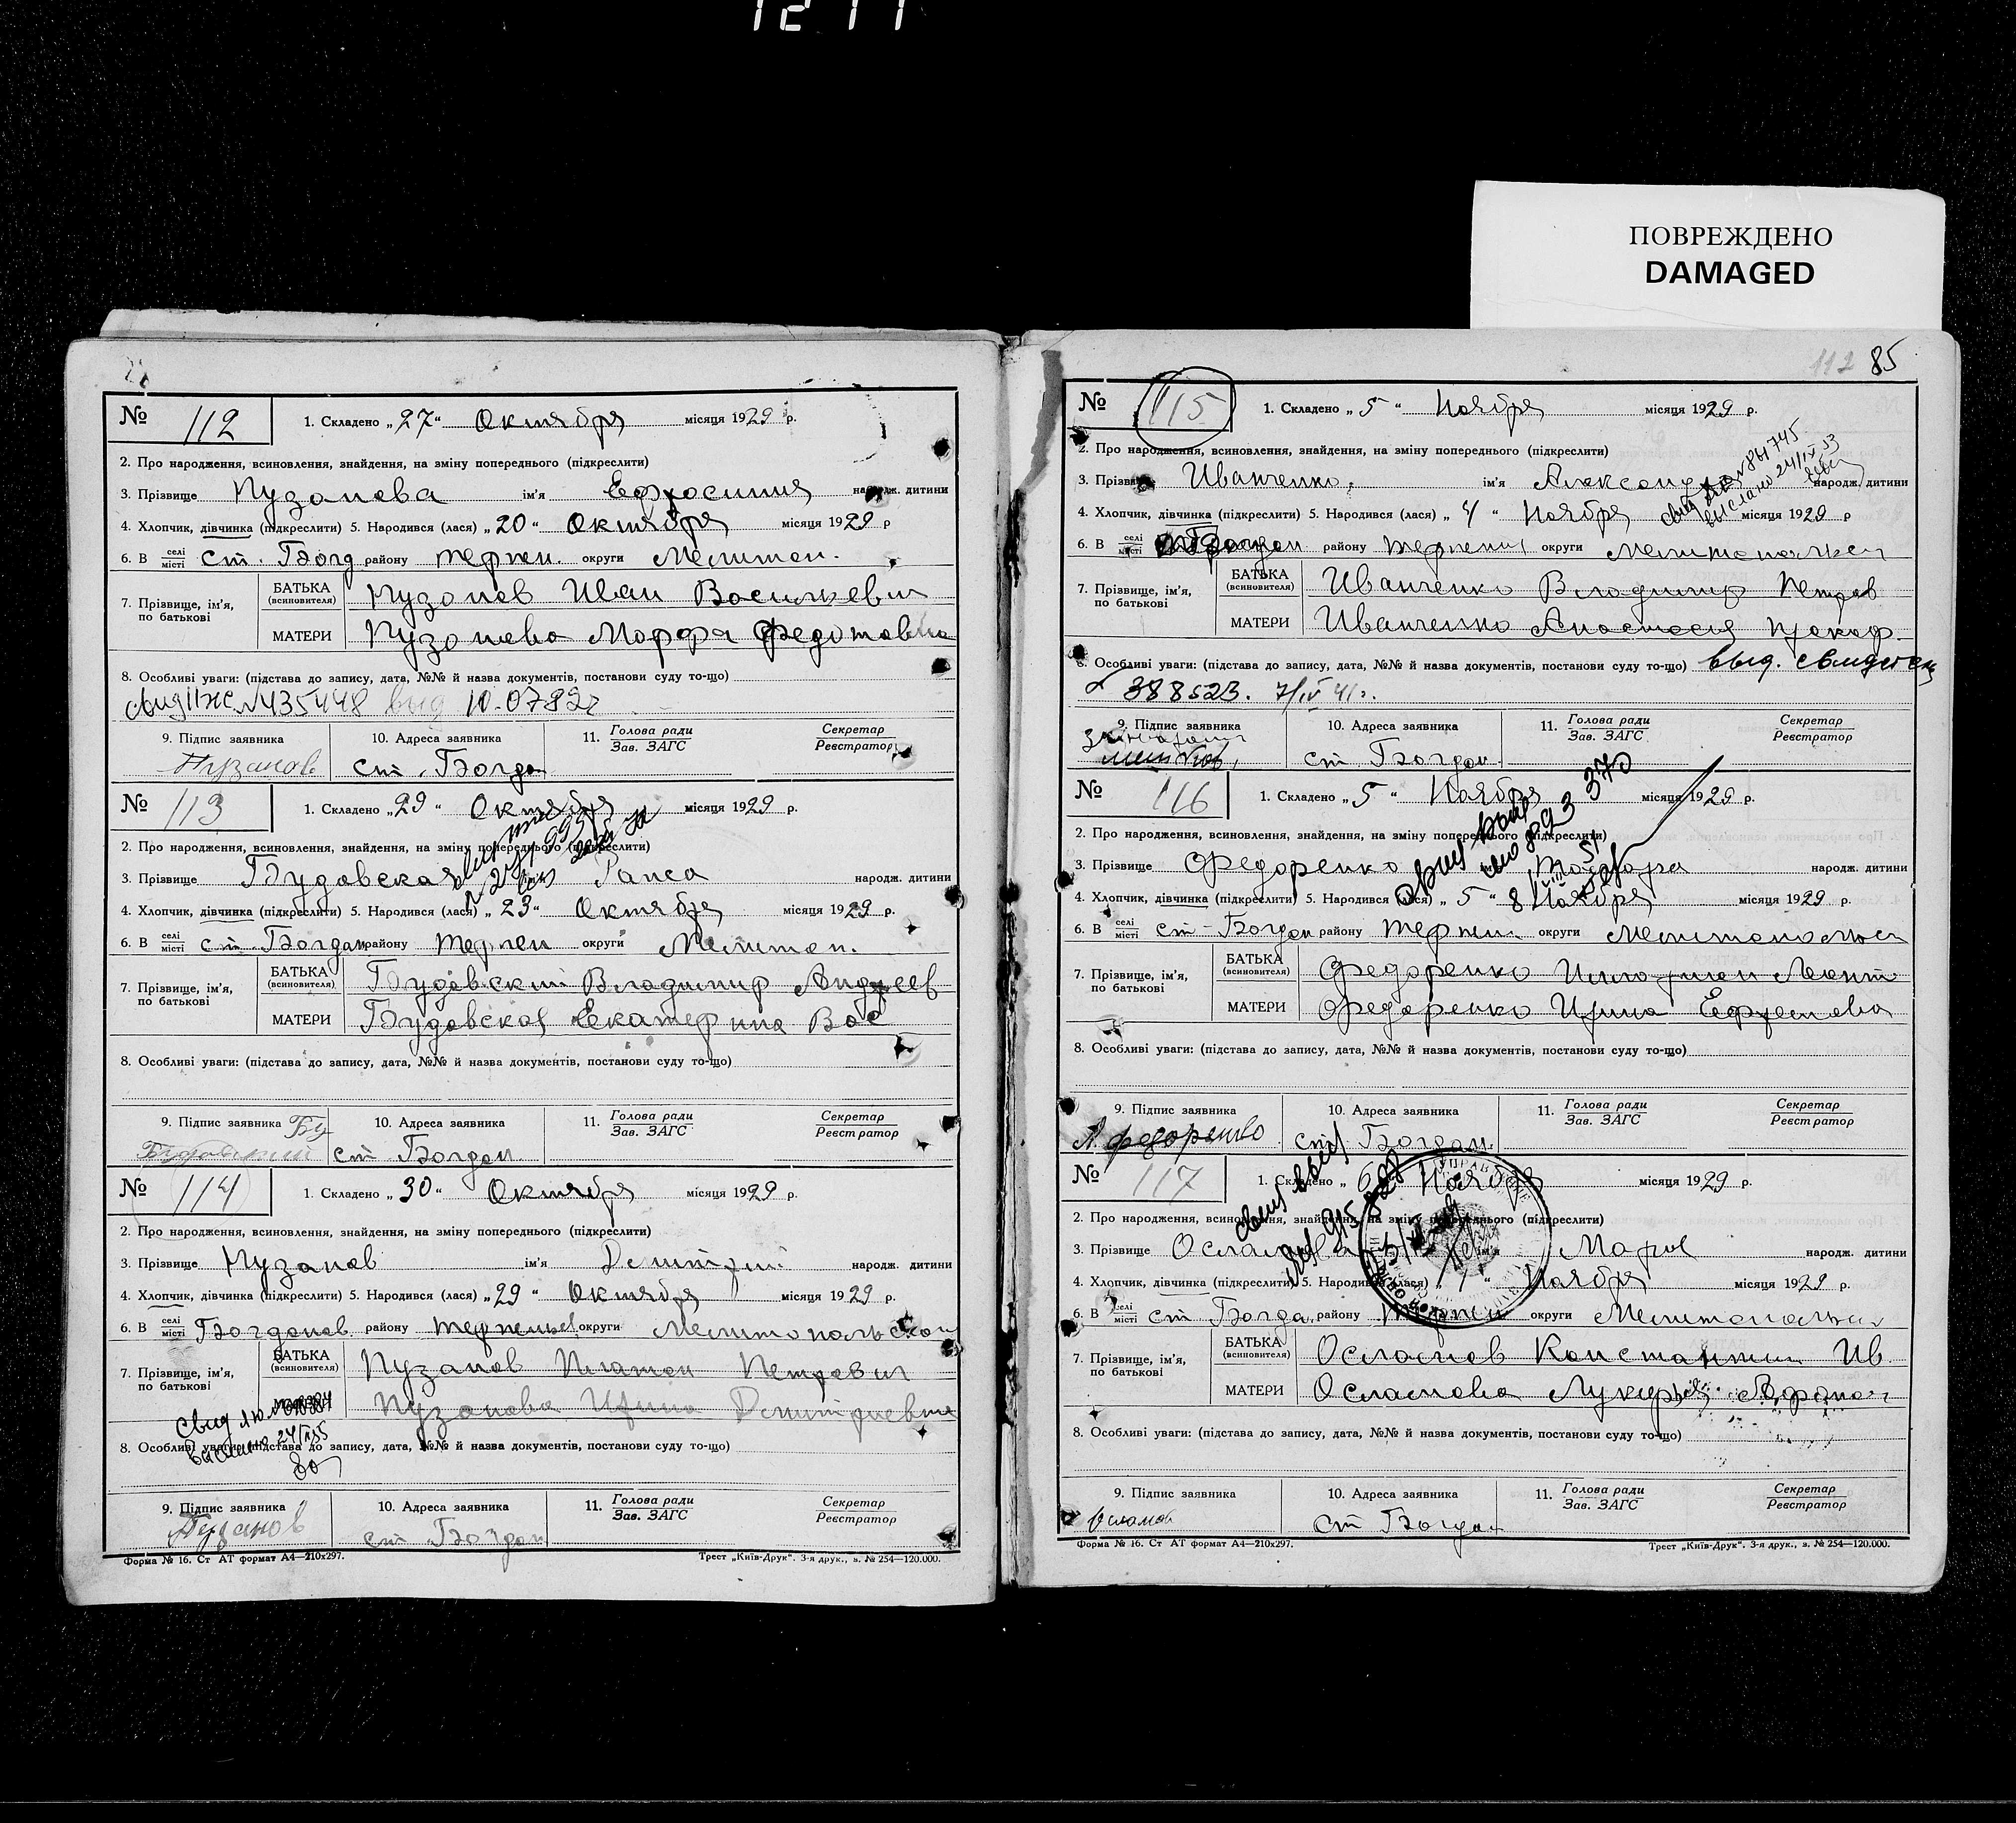 1211
ПОВРЕЖДЕНО
DAMAGED
№ 112 1. Складено „27“ Октября місяця 1929 р.
2. Про народження, всиновлення, знайдення, на зміну попереднього (підкреслити)
3. Прізвище Пузанова ім'я Ефросиния народж. дитини
4. Хлопчик, дівчинка (підкреслити) 5. Народився (лася) „20“ Октября місяця 1929 р
6. В селі місті ст. Богд району терпен. округи Мелитоп.
7. Прізвище, ім'я, по батькові БАТЬКА (всиновителя) Пузанов Иван Васильевич
МАТЕРИ Пузанова Марфа Федотовна
8. Особливі уваги: (підстава до запису, дата, №№ й назва документів, постанови суду то-що)
свид II ЖС №435448 выд 10.07.82г
9. Підпис заявника 10. Адреса заявника 11. Голова ради Зав. ЗАГС Секретар Реєстратор
Пузанов ст. Богдан
№ 113 1. Складено „29“ Октября місяця 1929 р.
2. Про народження, всиновлення, знайдення, на зміну попереднього (підкреслити)
3. Прізвище Будовская ім'я Раиса народж. дитини
4. Хлопчик, дівчинка (підкреслити) 5. Народився (лася) „23“ Октября місяця 1929 р.
6. В селі місті ст. Богдан району терпен округи Мелитоп.
7. Прізвище, ім'я, по батькові БАТЬКА (всиновителя) Будовский Владимир Андреев
МАТЕРИ Будовская Екатерина Вас
8. Особливі уваги: (підстава до запису, дата, №№ й назва документів, постанови суду то-що)
9. Підпис заявника Бу 10. Адреса заявника 11. Голова ради Зав. ЗАГС Секретар Реєстратор
Будовский ст Богдан.
№ 114 1. Складено „30“ Октября місяця 1929 р.
2. Про народження, всиновлення, знайдення, на зміну попереднього (підкреслити)
3. Прізвище Пузанов ім'я Димитрий народж. дитини
4. Хлопчик, дівчинка (підкреслити) 5. Народився (лася) „29“ Октября місяця 1929 р.
6. В селі місті Богданов. району терпеньев округи Мелитопольской
7. Прізвище, ім'я, по батькові БАТЬКА (всиновителя) Пузанов Платон Петрович
МАТЕРИ Пузанова Ирина Димитриевна
свид
выслано
8. Особливі уваги: (підстава до запису, дата, №№ й назва документів, постанови суду то-що)
9. Підпис заявника 10. Адреса заявника 11. Голова ради Зав. ЗАГС Секретар Реєстратор
Пузанов ст Богдан
Форма № 16. Ст АТ формат А4—210х297. Трест „Київ-Друк“. 3-я друк., з. № 254—120.000.
112 85
№ 115 1. Складено „5“ Ноября місяця 1929 р.
2. Про народження, всиновлення, знайдення, на зміну попереднього (підкреслити)
3. Прізвище Иванченко ім'я Александра народж. дитини
выслано 24/IX 53
4. Хлопчик, дівчинка (підкреслити) 5. Народився (лася) „4“ Ноября місяця 1929 р
6. В селі місті Богдан району терпени округи мелитопольск
7. Прізвище, ім'я, по батькові БАТЬКА (всиновителя) Иванченко Владимир Петров
МАТЕРИ Иванченко Анастасия Прокоф.
8. Особливі уваги: (підстава до запису, дата, №№ й назва документів, постанови суду то-що) выд. свидетел
388523. 7/IV 41г.
9. Підпис заявника 10. Адреса заявника 11. Голова ради Зав. ЗАГС Секретар Реєстратор
ст Богдан
№ 116 1. Складено „5“ Ноября місяця 1929 р.
2. Про народження, всиновлення, знайдення, на зміну попереднього (підкреслити)
3. Прізвище Федоренко Тамара народж. дитини
4. Хлопчик, дівчинка (підкреслити) 5. Народився (лася) „5“ Ноября місяця 1929 р.
6. В селі місті ст - Богдан району терпен округи Мелитопольск
7. Прізвище, ім'я, по батькові БАТЬКА (всиновителя) Федоренко
МАТЕРИ Федоренко Ирина Ефремовна
8. Особливі уваги: (підстава до запису, дата, №№ й назва документів, постанови суду то-що)
9. Підпис заявника 10. Адреса заявника 11. Голова ради Зав. ЗАГС Секретар Реєстратор
Федоренко ст Богдан.
№ 117 1. Складено „6“ Ноября місяця 1929 р.
2. Про народження, всиновлення, знайдення, на зміну попереднього (підкреслити)
3. Прізвище Осламова ім'я Мария народж. дитини
4. Хлопчик, дівчинка (підкреслити) 5. Народився (лася) Ноября місяця 1929 р.
6. В селі місті ст Богда району терпен округи Мелитопольск
7. Прізвище, ім'я, по батькові БАТЬКА (всиновителя) Осламов Константин Ив
МАТЕРИ Осламова Лукерья
8. Особливі уваги: (підстава до запису, дата, №№ й назва документів, постанови суду то-що)
9. Підпис заявника 10. Адреса заявника 11. Голова ради Зав. ЗАГС Секретар Реєстратор
Осламов ст Богдан
Форма № 16. Ст АТ формат А4—210х297. Трест „Київ-Друк“. 3-я друк., з. № 254—120.000.